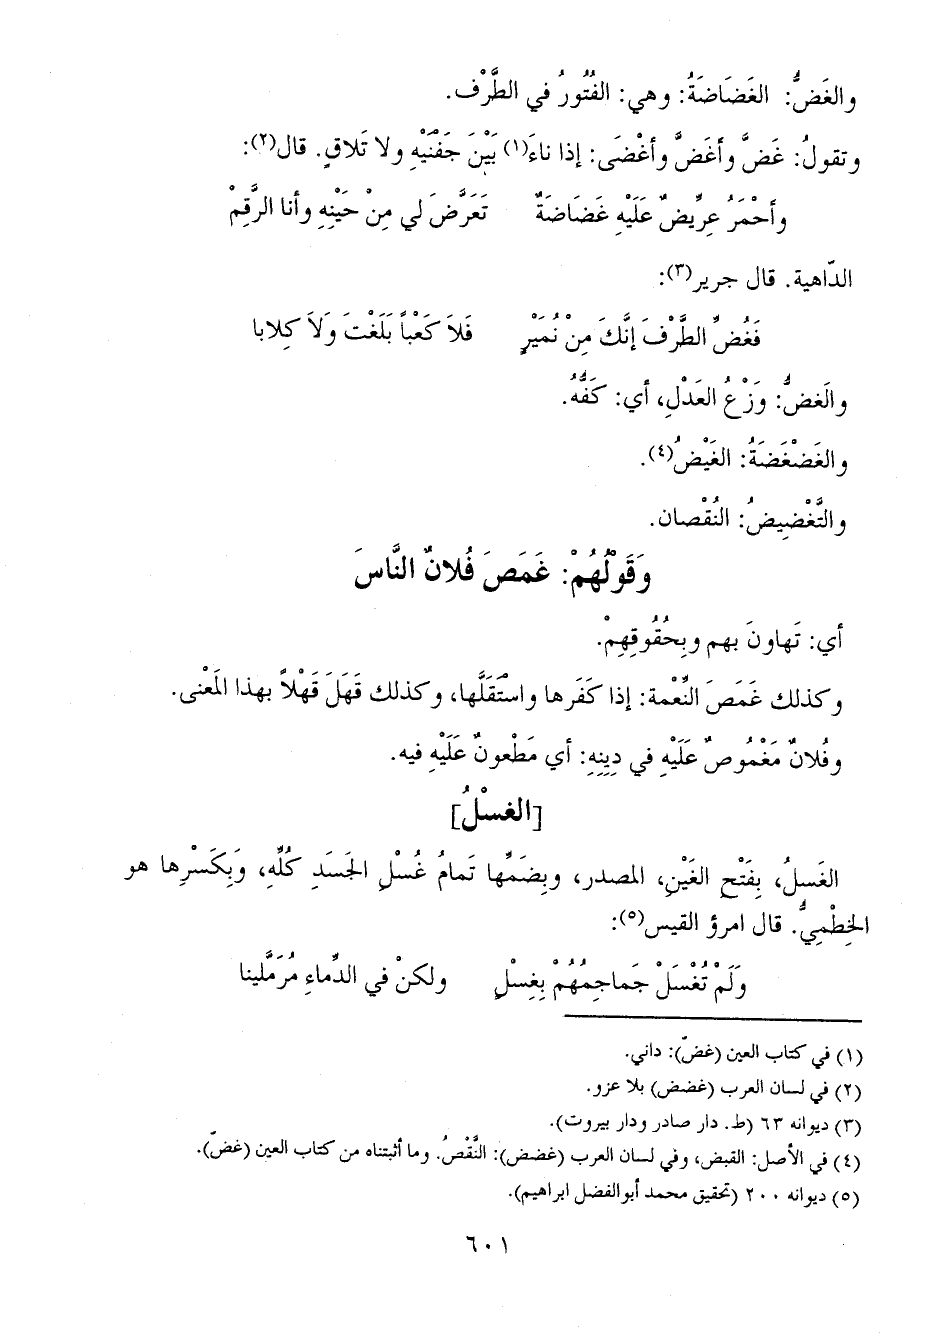 والغَضُّ: الغَضَاضَةُ: وهي: الفُتُورُ في الطَّرْف.
وتقولُ: غَضَّ وأغَضَّ وأغْضَى: إذا ناءَ(١) بَيْنَ جَفْنَيْهِ ولا تَلاقٍ. قال(٢):
وأحْمَرُ عِرِّيضٌ عَلَيْهِ غَضَاضَةٌ تَعَرَّضَ لي مِنْ حَيْنِهِ وأنا الرَّقِمْ
الدّاهية. قال جرير(٣):
فَغُضِّ الطَّرْفَ إنَّكَ مِنْ نُمَيْرٍ فَلاَ كَعْباً بَلَغْتَ وَلاَ كِلابا
والغضُّ: وَزْعُ العَدْلِ، أي: كَفُّهُ.
والغَضْغَضَةُ: الغَيْضُ(٤).
والتَّغْضِيضُ: النُقْصان.
وَقَوْلُهُمْ: غَمَصَ فُلانٌ النَّاسَ
أي: تَهاونَ بهم وبِحُقُوقِهِمْ.
وكذلك غَمَصَ النِّعْمة: إذا كَفَرها واسْتَقَلَّها، وكذلك قَهَلَ قَهْلاً بهذا المَعْنى.
وفُلانٌ مَغْمُوصٌ عَلَيْهِ في دِينِهِ: أي مَطْعونٌ عَلَيْهِ فيه.
[الغسْلُ]
الغَسلُ، بِفَتْحِ الغَيْنِ، المصدر، وبِضَمِّها تَمامُ غُسْلِ الجَسَدِ كُلِّهِ، وَبِكَسْرِها هو
الخِطْمِيُّ. قال امرؤ القيس(٥):
وَلَمْ تُغْسَلْ جَماجِمُهُمْ بِغِسْلٍ ولكنْ في الدِّماءِ مُرَمَّلينا
(١) في كتاب العين (غضّ): داني.
(٢) في لسان العرب (غضض) بلا عزو.
(٣) ديوانه ٦٣ (ط. دار صادر ودار بيروت).
(٤) في الأصل: القبض، وفي لسان العرب (غضض): النَّقْصُ. وما أثبتناه من كتاب العين (غضّ).
(٥) ديوانه ٢٠٠ (تحقيق محمد أبوالفضل ابراهيم).
٦٠١